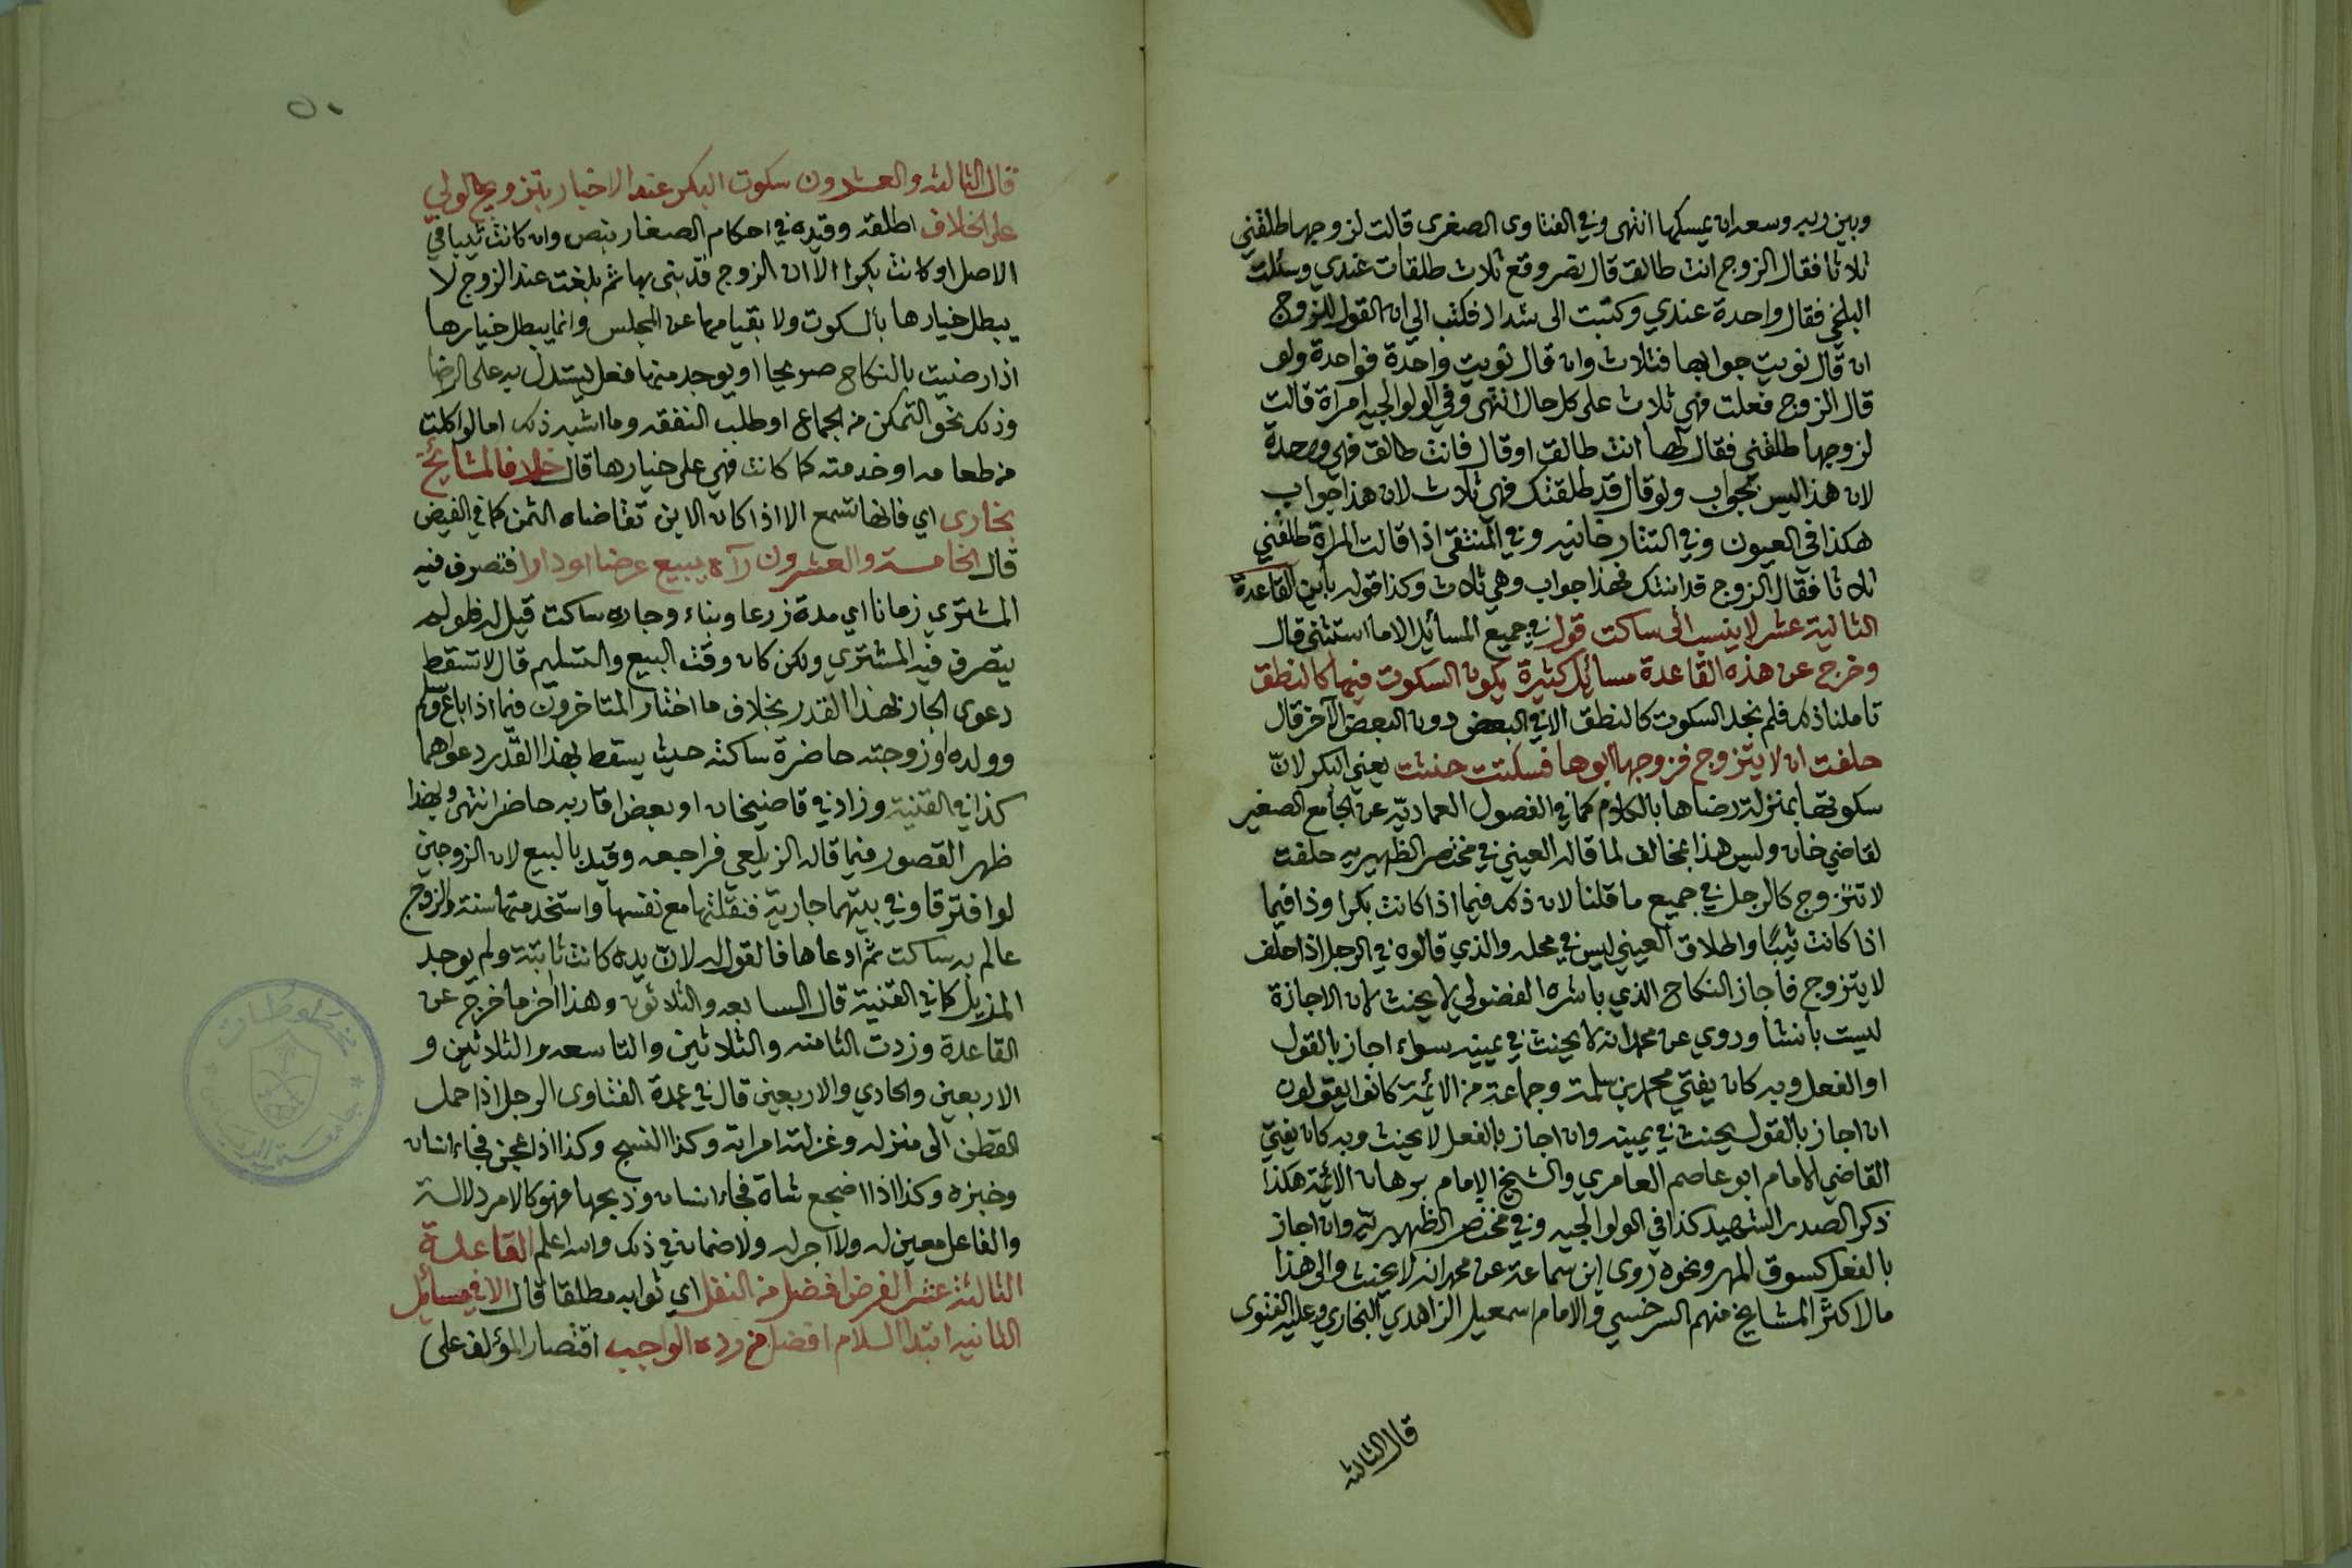 وبين ربه وسعه ان يمسكها انتهى وفي الفتاوى الصغرى قالت لزوجها طلقني
ثلاثا فقال الزوج انت طالق قال نصر وقع ثلاث طلقات عندي وسئلت
البلخي فقال واحدة عندي وكتبت الى شداد فكتب الي ان القول للزوج
ان قال نويت جوابها فثلاث وان قال نويت واحدة فواحدة ولو
قال الزوج فعلت فهي ثلاث على كل حال انتهى وفي الولوالجيه امرأة قالت
لزوجها طلقني فقال لها انت طالق او قال فانت طالق فهي وحدة
لان هذا ليس بجواب ولو قال قد طلقتك فهي ثلاث لان هذا جواب
هكذا في العيون وفي التتارخانيه وفي المنتقى اذا قالت المراة طلقني
ثلاثا فقال الزوج قد ابنتك فهذا جواب وهي ثلاث وكذا قوله باين القاعدة
الثانية عشر لا ينسب الى ساكت قول في جميع المسائل الا ما استثنى قال
وخرج عن هذه القاعدة مسائل كثيرة يكون السكوت فيها كالنطق
تاملنا ذلك فلم نجد السكوت كالنطق الا في البعض دون البعض الآخر قال
حلفت ان لا يتزوج فزوجها ابوها فسكتت حنثت يعني البكر لانّ
سكوتها بمنزلة رضاها بالكلام كما في الفصول العماديّه عن الجامع الصغير
لقاضي خان وليس هذا بمخالف لما قاله العيني في مختصر الظهيريه حلفت
لا تتزوج كالرجل في جميع ما قلنا لان ذلك فيما اذا كانت بكرا وذا فيما
اذا كانت ثيبًا واطلاق العيني ليس في محله والذي قالوه في الرجل اذا حلف
لا يتزوج فاجاز النكاح الذي باشره الفضولي لا يحنث لان الاجازة
ليست بانشا وروي عن محمد انه لا يحنث في يمينه سواء اجاز بالقول
او الفعل وبه كان يفتي محمد بن سلمة وجماعة من الائمة كانوا يقولون
ان اجاز بالقول يحنث في يمينه وان اجاز بالفعل لا يحنث وبه كان يفتي
القاضي الامام ابو عاصم العامري والشيخ الامام برهان الائمة هكذا
ذكر الصدر الشهيد كذا في الولوالجيه وفي مختصر الظهيريّه وان اجاز
بالفعل كسوق المهر ونحوه روى ابن سماعة عن محمد انه لا يحنث والى هذا
مال اكثر المشايخ منهم السرخسي والامام اسمعيل الزاهدي البخاري وعليه الفتوى
قال الثالثه
٥٠
قال الثالثه والعشرون سكوت البكر عند الاخبار بتزويج الولي
على الخلاف اطلقه وقيده في احكام الصغار بنص وان كانت ثيبا في
الاصل او كانت بكرا الا ان الزوج قد بنى بها ثم بلغت عند الزوج لا
يبطل خيارها بالسكوت ولا بقيامها عن المجلس وانما يبطل خيارها
اذا رضيت بالنكاح صريحا او يوجد منها فعل يستدل به على الرضا
وذلك نحو التمكن من الجماع او طلب النفقه وما اشبه ذلك اما لو اكلت
من طعامه او خدمته كما كانت فهي على خيارها قال خلافا لمشايخ
بخارى اي فانها تسمع الا اذا كان الاين تقاضاه الثمن كما في الفيض
قال الخامسة والعشرون رآه يبيع عرضا او دارا فتصرف فيه
المشتري زمانا اي مدة زرعا وبناء وجاره ساكت قيل له فلو لم
يتصرف فيه المشتري ولكن كان وقت البيع والتسليم قال لا تسقط
دعوى الجار بهذا القدر بخلاف ما اختار المتاخرون فيما اذا باع وسلم
وولده او زوجته حاضرة ساكتة حيث يسقط بهذا القدر دعواهما
كذا في القنية وزاد في قاضيخان او بعض اقاربه حاضر انتهى وبهذا
ظهر القصور فيما قاله الزيلعي فراجعه وقيد بالبيع لان الزوجين
لو افترقا وفي بيتهما جارية فنقلتها مع نفسها واستخدمتها سنة والزوج
عالم به ساكت ثم ادعاها فالقول له لانّ يده كانت ثابتة ولم يوجد
المزيل كما في القنية قال السابعه والثلاثون وهذا آخر ما خرج عن
القاعدة وزدت الثامنه والثلاثين والتاسعه والثلاثين و
الاربعين والحادي والاربعين قال في عمدة الفتاوى الرجل اذا حمل
القطن الى منزله وغزلته امراته وكذا النسج وكذا اذا عجن فجاء انسان
وخبزه وكذا اذا اضجع شاة فجاء انسان وذبحها فهو كالامر دلالة
والفاعل معين له ولا آجر له ولا ضمان في ذلك والله اعلم القاعدة
الثالثة عشر الفرض افضل من النفل اي ثوابه مطلقا قال الا في مسايل
الثانيه ابتدا السلام افضل من رده الواجب اقتصار المؤلف على
مخطوطات